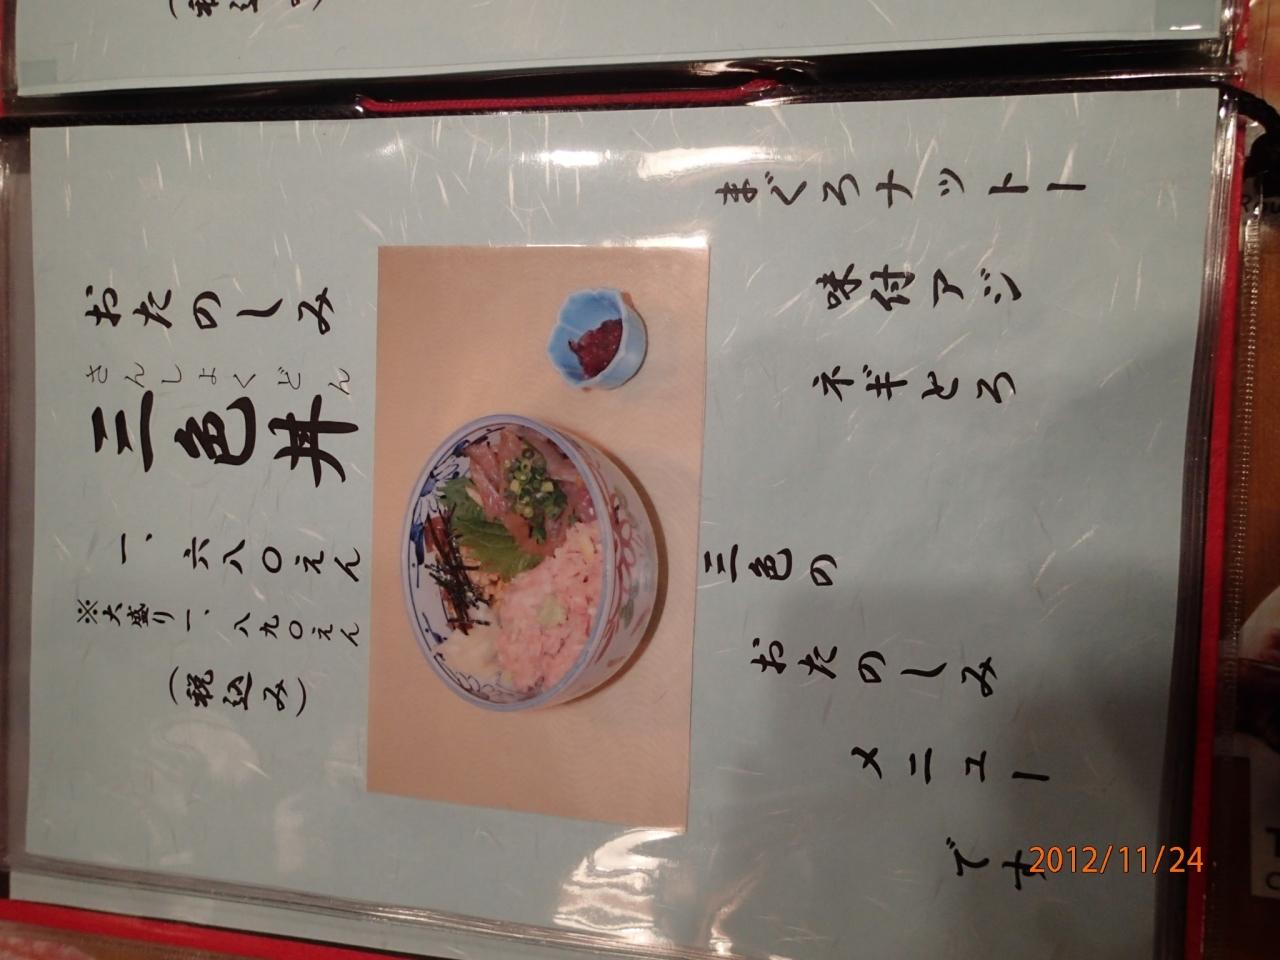 おたのしみ
さんしょくどん
三色丼
一、六八〇えん
※大盛り一、八九〇えん
(税込み)
まぐろナットー
味付アジ
ネギとろ
三色の
おたのしみ
メニュー
です
2012/11/24